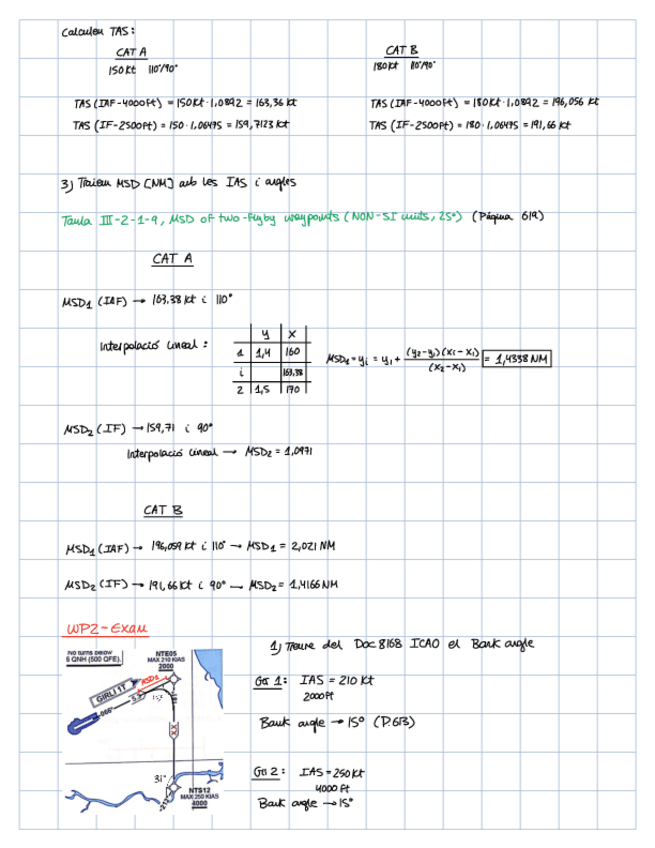 Calculem TAS:
CAT A
150 kt 110°/90°
CAT B
180 kt 110°/90°
TAS (IAF-4000ft) = 150kt · 1,0892 = 163,36 kt
TAS (IAF-4000ft) = 180kt · 1,0892 = 196,056 kt
TAS (IF-2500ft) = 150 · 1,06475 = 159,7123 kt
TAS (IF-2500ft) = 180 · 1,06475 = 191,66 kt
3) Traiem MSD [NM] amb les IAS i angles
Taula III-2-1-9, MSD of two-flyby waypoints (NON-SI units, 25°) (Pàgina 619)
CAT A
MSD1 (IAF) → 163,38 kt i 110°
Interpolació lineal:
y x
1 1,4 160
i 163,38
2 1,5 170
MSD1 = yi = y1 + (y2-y1)(xi-x1) / (x2-x1) = 1,4338 NM
MSD2 (IF) → 159,71 i 90°
Interpolació lineal → MSD2 = 1,0971
CAT B
MSD1 (IAF) → 196,059 kt i 110° → MSD1 = 2,021 NM
MSD2 (IF) → 191,66 kt i 90° → MSD2 = 1,4166 NM
WP2-Exam
1) Treure del Doc 8168 ICAO el Bank angle
No turns below
5 QNH (500 QFE).
NTE05
MAX 210 KIAS
2000
MSD1
GIRLI 1T
5.3
066°
31°
NTS12
MAX 250 KIAS
4000
Gir 1: IAS = 210 kt
2000ft
Bank angle → 15° (P.613)
Gir 2: IAS = 250 kt
4000 ft
Bank angle → 15°